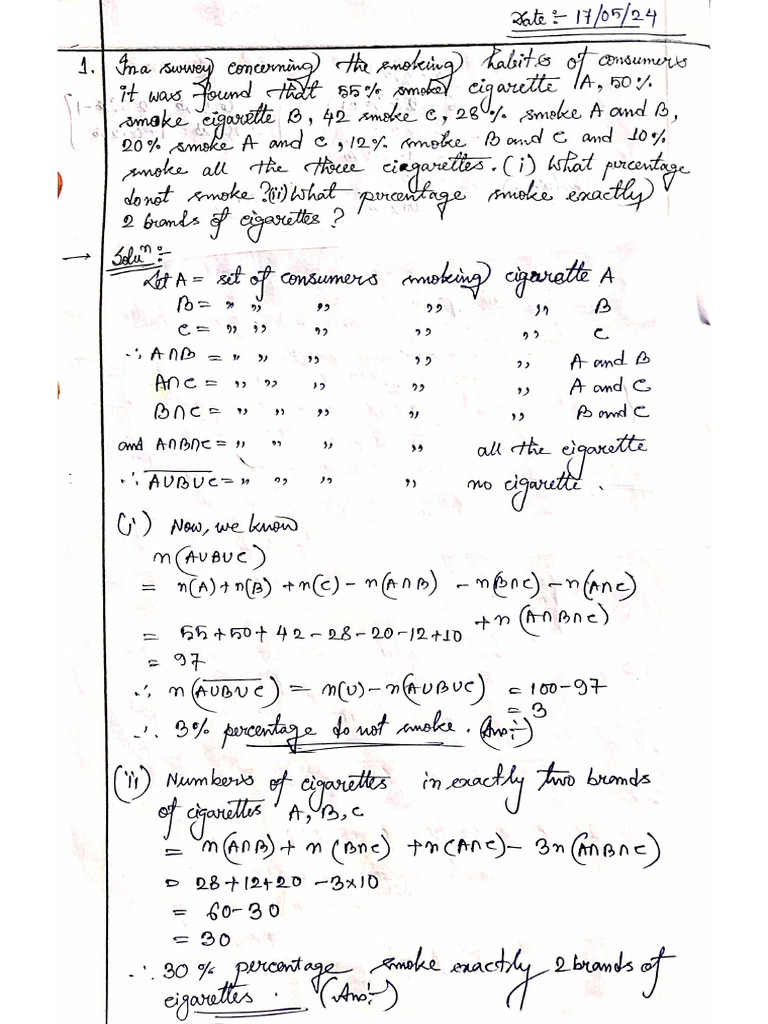 Date :- 17/05/24
1. In a survey concerning the smoking habits of consumers
it was found that 55% smoke cigarette A, 50%
smoke cigarette B, 42 smoke C, 28% smoke A and B,
20% smoke A and C, 12% smoke B and C and 10%
smoke all the three cigarettes. (i) What percentage
do not smoke? (ii) What percentage smoke exactly
2 brands of cigarettes?
→ Soluⁿ :-
Let A = set of consumers smoking cigaratte A
B = " " " " " B
C = " " " " " C
∴ A∩B = " " " " " A and B
A∩C = " " " " " A and C
B∩C = " " " " " B and C
and A∩B∩C = " " " " all the cigarette
∴ \overline{A∪B∪C} = " " " " no cigarette.
(i) Now, we know
n(A∪B∪C)
= n(A) + n(B) + n(C) - n(A∩B) - n(B∩C) - n(A∩C)
+ n(A∩B∩C)
= 55 + 50 + 42 - 28 - 20 - 12 + 10
= 97
∴ n(\overline{A∪B∪C}) = n(U) - n(A∪B∪C) = 100 - 97
= 3
∴ 3% percentage do not smoke. (Ans:-)
(ii) Numbers of cigarettes in exactly two brands
of cigarettes A, B, C
= n(A∩B) + n(B∩C) + n(A∩C) - 3n(A∩B∩C)
= 28 + 12 + 20 - 3×10
= 60 - 30
= 30
∴ 30% percentage smoke exactly 2 brands of
cigarettes. (Ans:-)